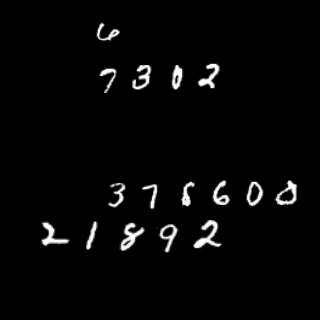 6
7302
378600
21892